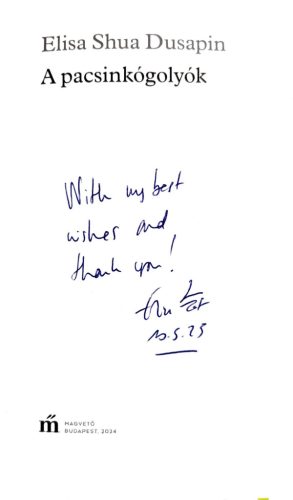 Elisa Shua Dusapin
A pacsinkógolyók
With my best
wishes and
thank you!
m̋ MAGVETŐ
BUDAPEST, 2024